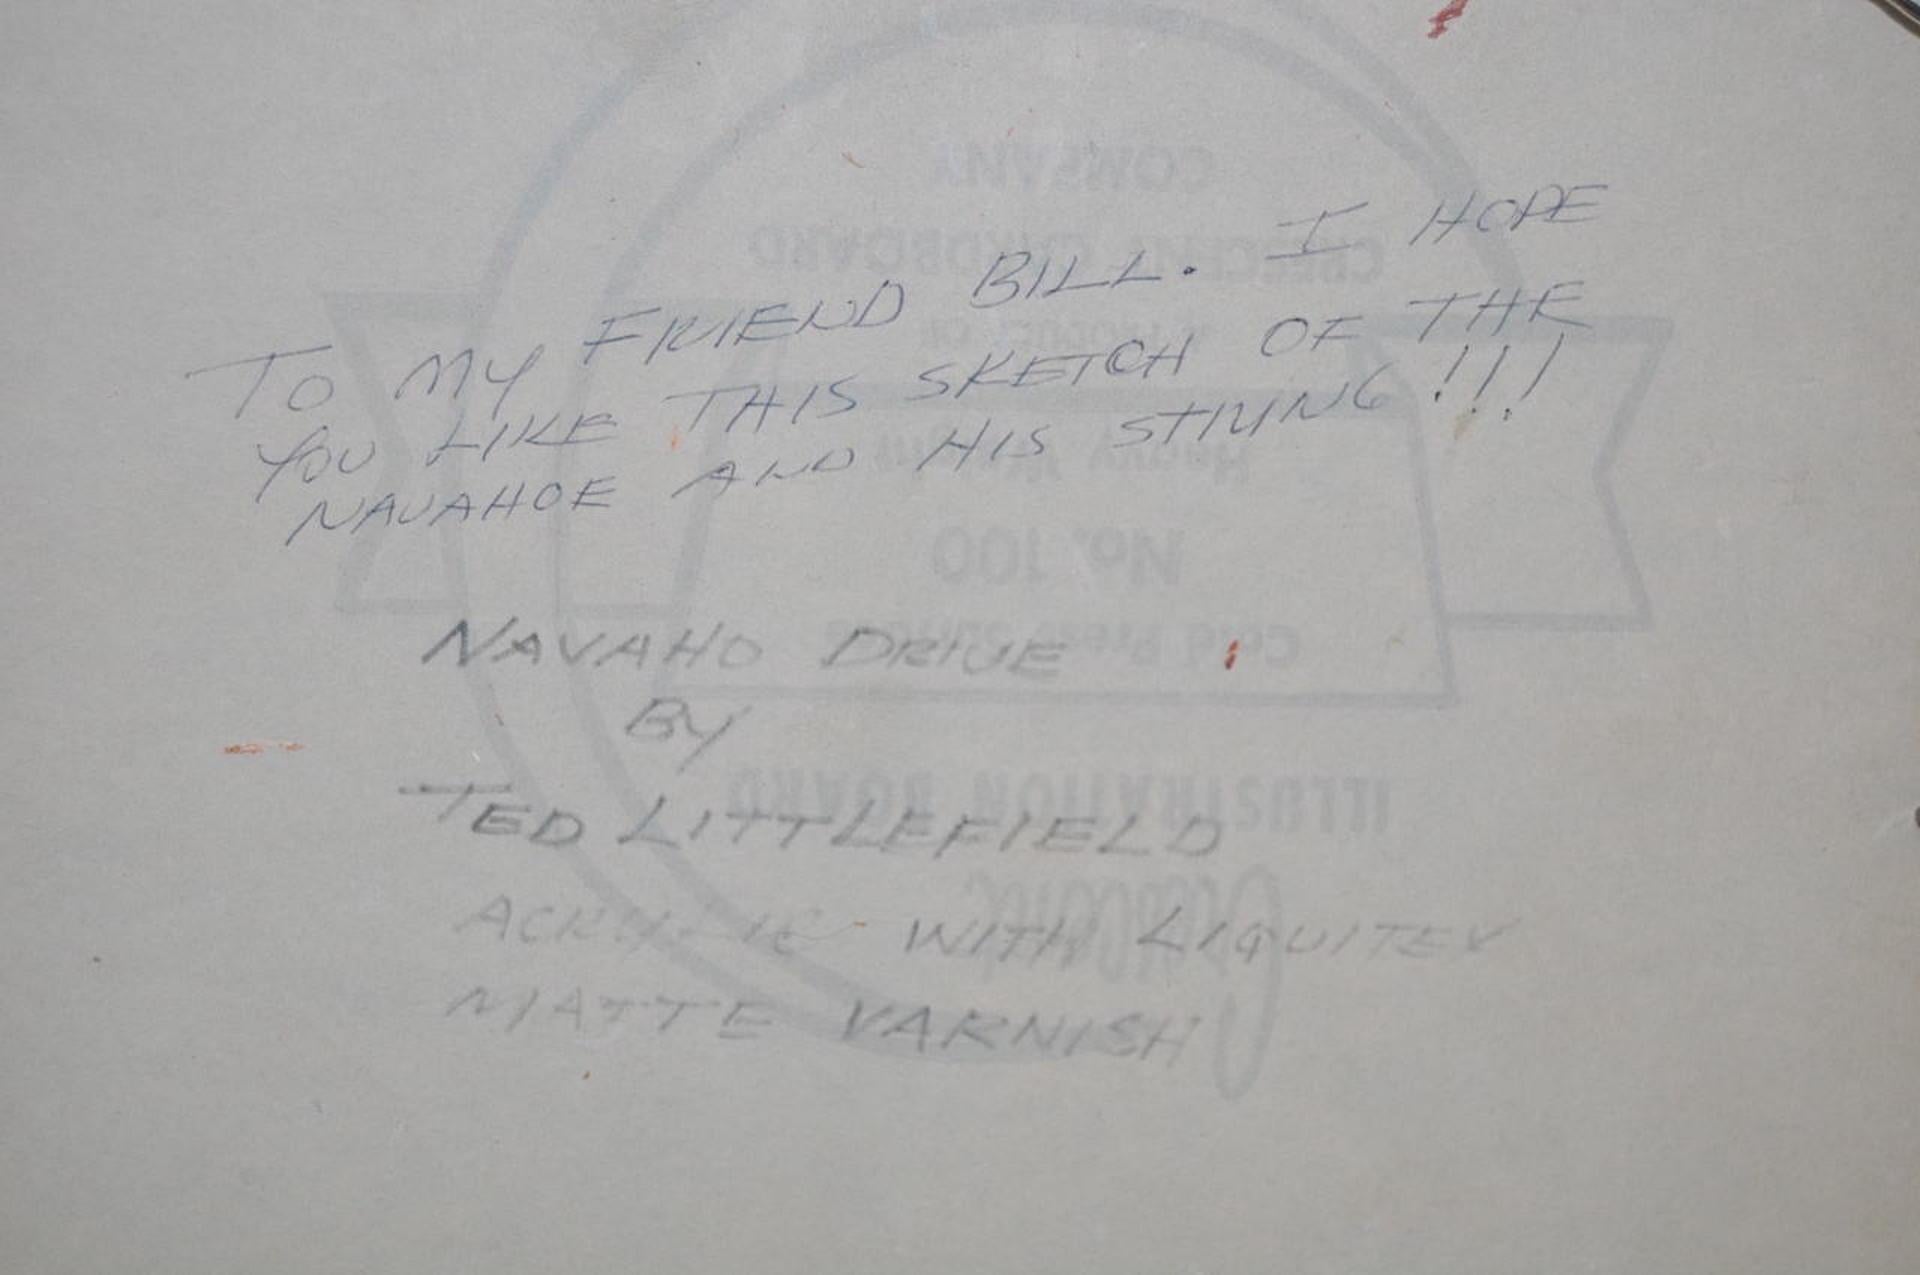 TO MY FRIEND BILL. I HOPE
YOU LIKE THIS SKETCH OF THE
NAVAHOE AND HIS
!!!
NAVAHO DRIVE
BY
TED LITTLEFIELD
ACRYLIC WITH LIQUITEX
MATTE VARNISH
COMPANY
CRESCENT CARDBOARD
A PRODUCT OF
Heavy Weight
No. 100
Cold Press
ILLUSTRATION BOARD
Crescent